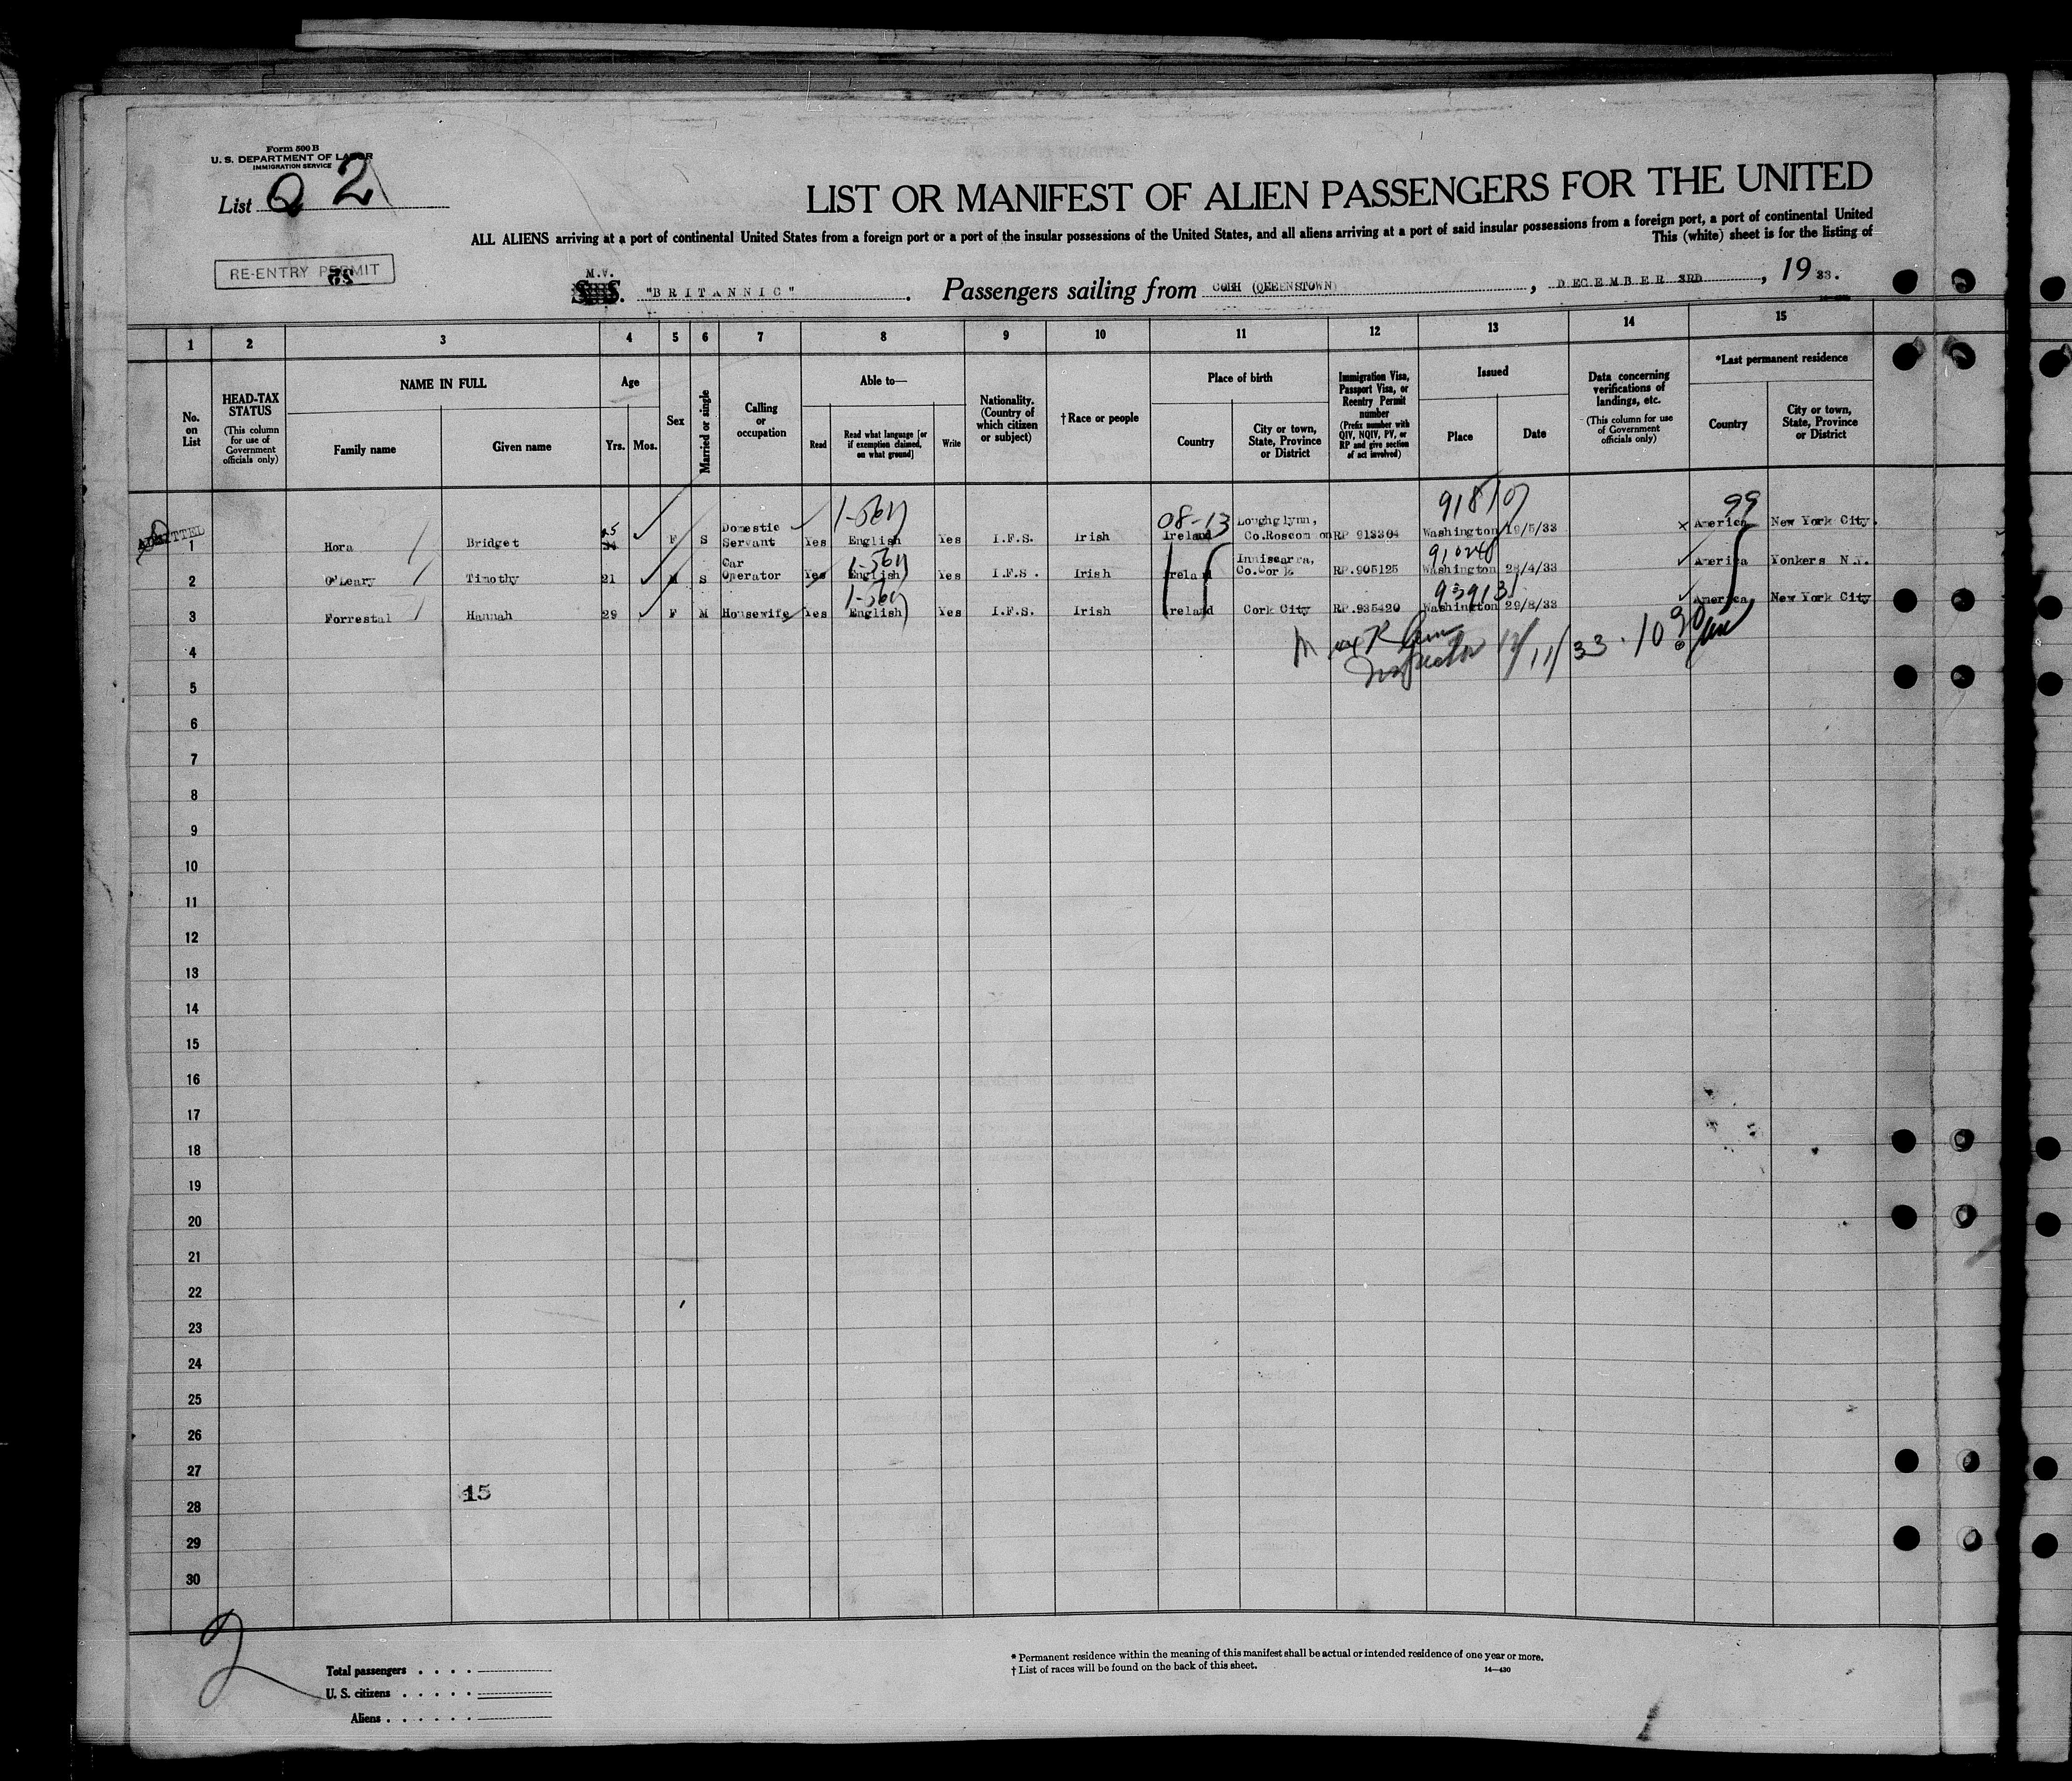 Form 500 B
U. S. DEPARTMENT OF LABOR
IMMIGRATION SERVICE
List 2
LIST OR MANIFEST OF ALIEN PASSENGERS FOR THE UNITED
ALL ALIENS arriving at a port of continental United States from a foreign port or a port of the insular possessions of the United States, and all aliens arriving at a port of said insular possessions from a foreign port, a port of continental United
This (white) sheet is for the listing of
RE-ENTRY PERMIT
M.V. "BRITANNIC". Passengers sailing from COBH (QUEENSTOWN), DECEMBER 3RD, 1933.
1 2 3 4 5 6 7 8 9 10 11 12 13 14 15
No. on List
HEAD-TAX STATUS
(This column for use of Government officials only)
NAME IN FULL
Family name
Given name
Age
Yrs. Mos.
Sex
Married or single
Calling or occupation
Able to—
Read
Read what language [or if exemption claimed, on what ground]
Write
Nationality. (Country of which citizen or subject)
†Race or people
Place of birth
Country
City or town, State, Province or District
Immigration Visa, Passport Visa, or Reentry Permit number
(Prefix number with QIV, NQIV, PV, or RP and give section of act involved)
Issued
Place
Date
Data concerning verifications of landings, etc.
(This column for use of Government officials only)
*Last permanent residence
Country
City or town, State, Province or District
918107 99
ADMITTED
1 Hora Bridget 25 F S Domestic Servant Yes English Yes I.F.S. Irish 08-13 Ireland Loughglynn, Co.Roscommon RP 913304 Washington 19/5/33 x America New York City.
2 O'Leary Timothy 21 M S Car Operator Yes English Yes I.F.S. Irish Ireland Inniscarra, Co.Cork RP.905125 Washington 28/4/33 America Yonkers N.Y.
3 Forrestal Hannah 29 F M Housewife Yes English Yes I.F.S. Irish Ireland Cork City RP.935420 Washington 29/8/33 America New York City
93913
4
Inspector 12/11/33
5
6
7
8
9
10
11
12
13
14
15
16
17
18
19
20
21
22
23
24
25
26
27
15
28
29
30
2
Total passengers
U. S. citizens
Aliens
* Permanent residence within the meaning of this manifest shall be actual or intended residence of one year or more.
† List of races will be found on the back of this sheet.
14—430